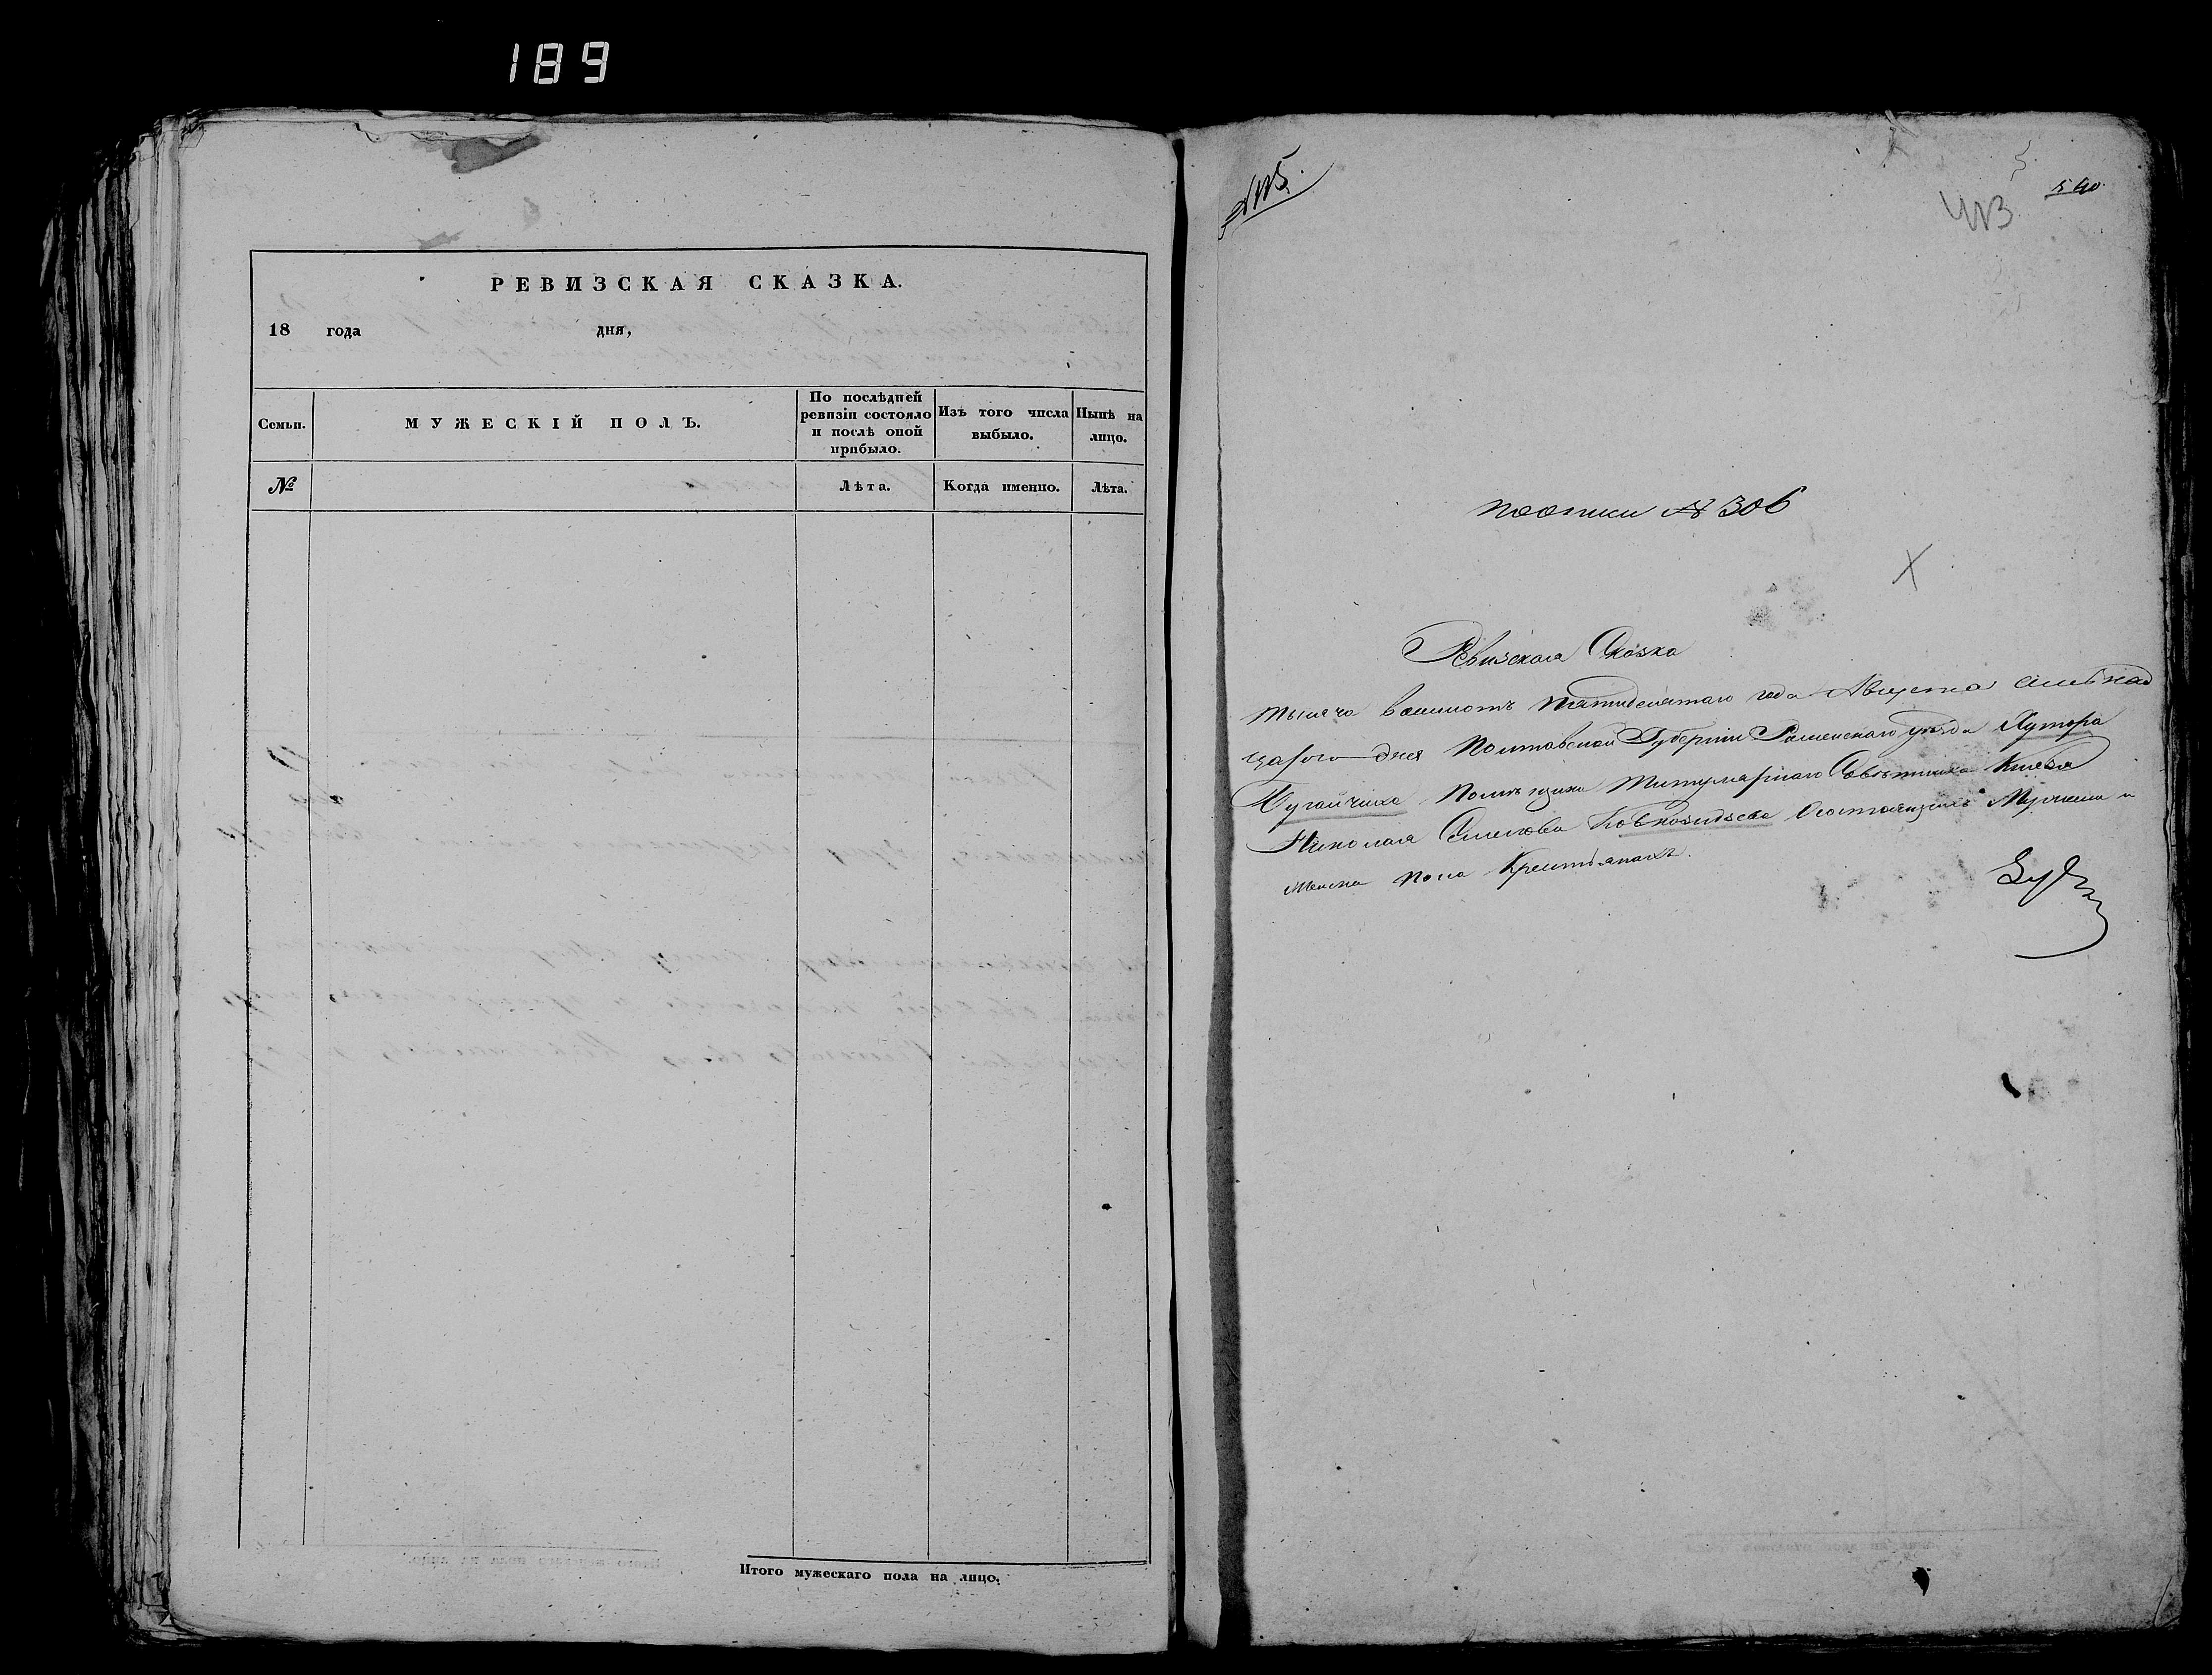 189
РЕВИЗСКАЯ СКАЗКА.
18 года дня,
Семьи.
МУЖЕСКІЙ ПОЛЪ.
По послѣдней ревизіи состояло и послѣ оной прибыло.
Изъ того числа выбыло.
Нынѣ на лицо.
№
Лѣта.
Когда именно.
Лѣта.
Итого мужескаго пола на лицо.
540
поописи № 306
Ревизская Сказка
тысяча восемсотъ пятидесятаго года Августа
дня Полтавской Губерніи Роменскаго уѣзда Хутора
Помѣщика Титулярнаго Совѣтника Князя
Николая Семенова Состоящихъ Мужеска и
Женска пола Крестьянахъ.